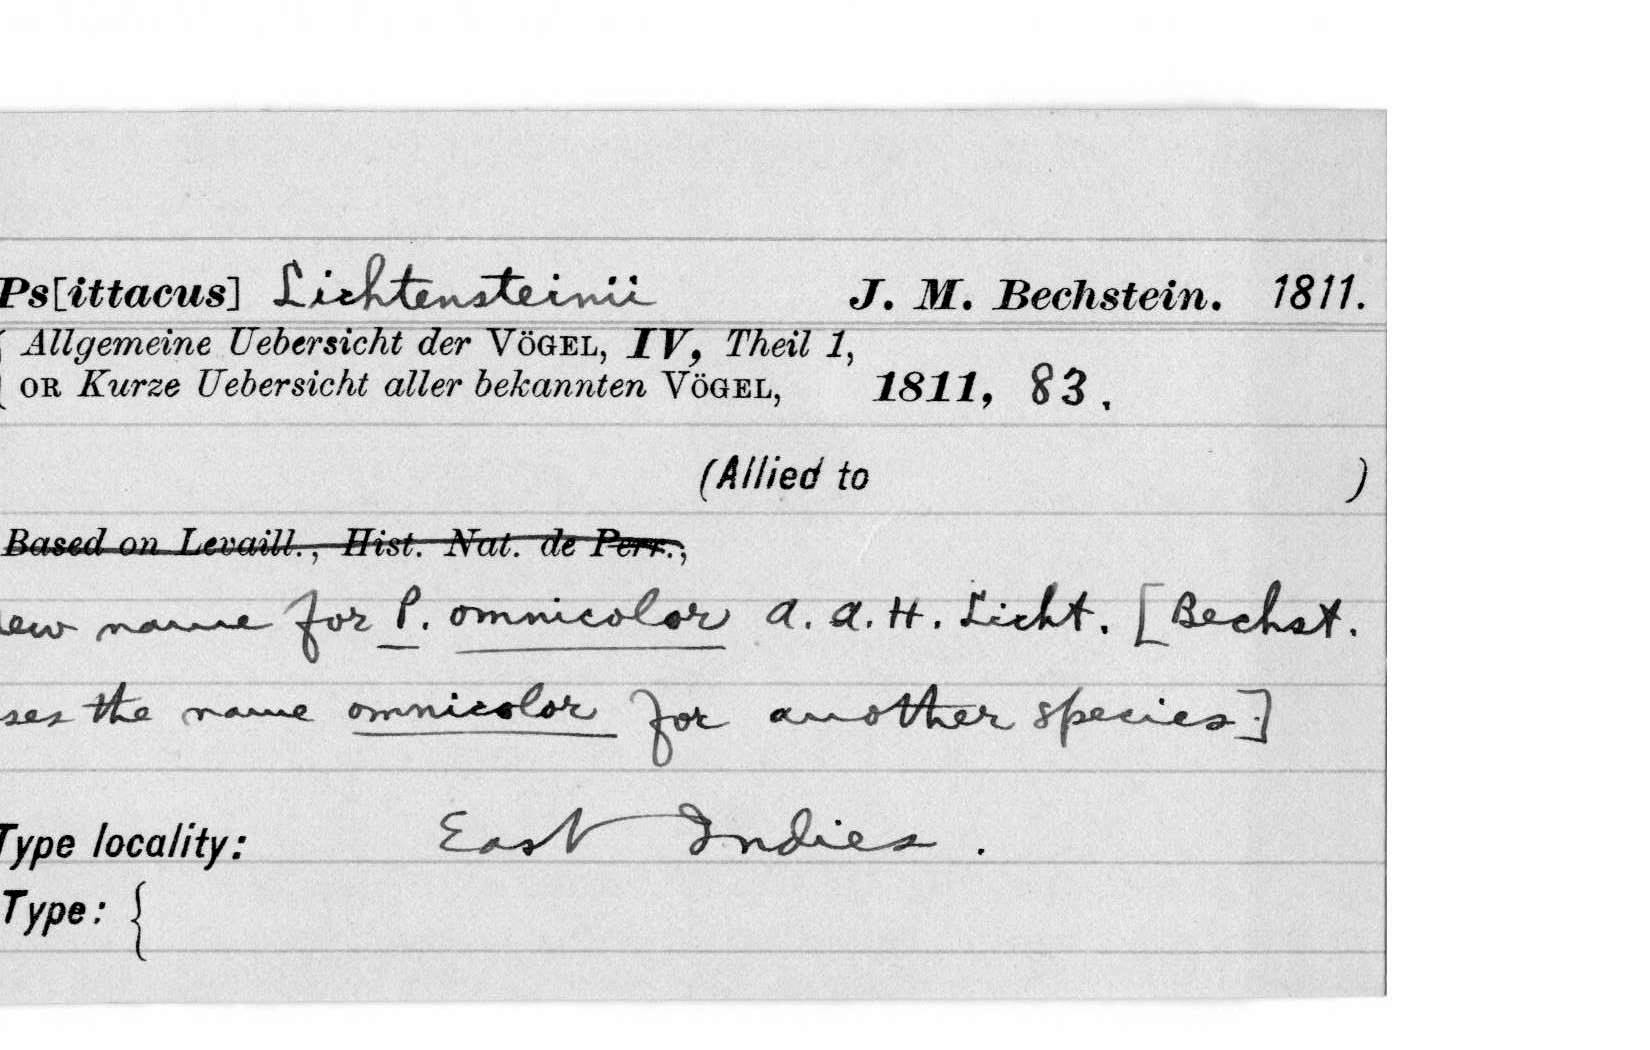 Ps[ittacus] Lichtensteinii J. M. Bechstein. 1811.
{ Allgemeine Uebersicht der VÖGEL, IV, Theil 1,
OR Kurze Uebersicht aller bekannten VÖGEL, 1811, 83.
(Allied to )
Based on Levaill., Hist. Nat. de Perr.,
ew name for P. omnicolor A. A. H. Licht. [Bechst.
ses the name omnicolor for another species.]
Type locality: East Indies.
Type: {